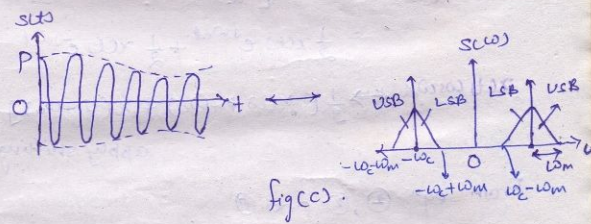 S(t)
P
O
t
S(ω)
USB LSB
LSB USB
-ωc-ωm -ωc
O
ωm
-ωc+ωm
ωc-ωm
fig(c).